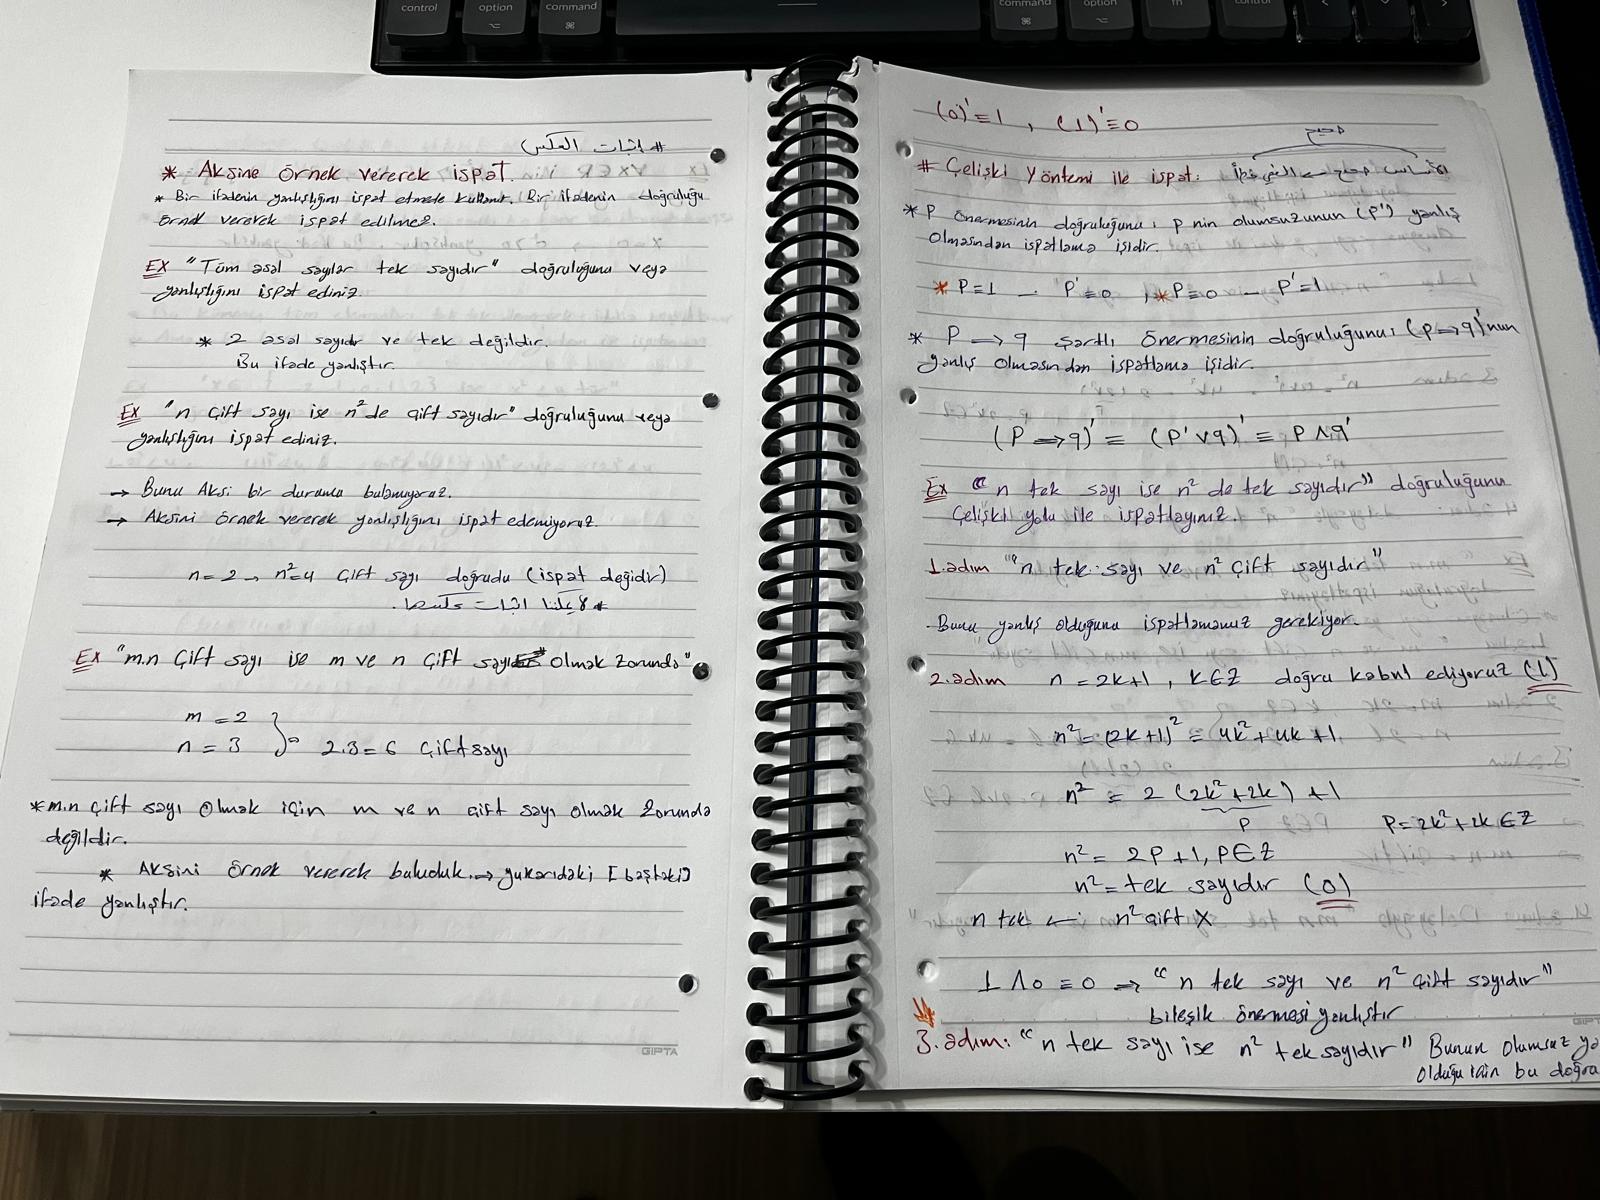 control
option
command
command
option
fn
control
# إثبات العكس
* Aksine Örnek vererek ispat.
* Bir ifadenin yanlışlığını ispat etmekte kullanır. Bir ifadenin doğruluğu
örnek vererek ispat edilmez.
EX "Tüm asal sayılar tek sayıdır" doğruluğunu veya
yanlışlığını ispat ediniz.
* 2 asal sayıdır ve tek değildir.
Bu ifade yanlıştır.
Ex "n çift sayı ise n² de çift sayıdır" doğruluğunu veya
yanlışlığını ispat ediniz.
→ Bunu Aksi bir durumu bulamıyoruz.
→ Aksini örnek vererek yanlışlığını ispat edemiyoruz.
n=2 → n²=4 Çift sayı doğrudu (ispat değidir)
* لا يمكننا اثبات عكسها.
Ex "m.n Çift sayı ise m ve n Çift sayı olmak zorunda"
m = 2
n = 3 } 2.3 = 6 Çift sayı
* m.n çift sayı olmak için m ve n çift sayı olmak zorunda
değildir.
* Aksini örnek vererek buluduk → yukarıdaki [baştaki]
ifade yanlıştır.
GIPTA
(0)'≡1 , (1)'≡0
صحيح
# Çelişki Yöntemi ile ispat:
* P önermesinin doğruluğunu, p nin olumsuzunun (p') yanlış
olmasından ispatlama işidir.
* P≡1 — P'≡0 , * P≡0 — P'≡1
* P ⇒ q şartlı önermesinin doğruluğunu, (p⇒q)'nun
yanlış olmasından ispatlama işidir.
(P ⇒ q)' ≡ (P' ∨ q)' ≡ P ∧ q'
Ex "n tek sayı ise n² de tek sayıdır" doğruluğunu
Çelişki yolu ile ispatlayınız.
1.adım "n tek sayı ve n² Çift sayıdır"
Bunu yanlış olduğunu ispatlamamız gerekiyor.
2.adım n = 2k+1 , k∈Z doğru kabul ediyoruz (1)
n² = (2k+1)² = 4k²+4k+1
n² = 2 (2k²+2k) +1
P P=2k²+2k ∈ Z
n² = 2P+1, P∈Z
n² = tek sayıdır (0)
n tek ← n² çift X
1 ∧ 0 ≡ 0 → "n tek sayı ve n² çift sayıdır"
bileşik önermesi yanlıştır
3.adım: "n tek sayı ise n² tek sayıdır" Bunun olumsuz ya
olduğu için bu doğru